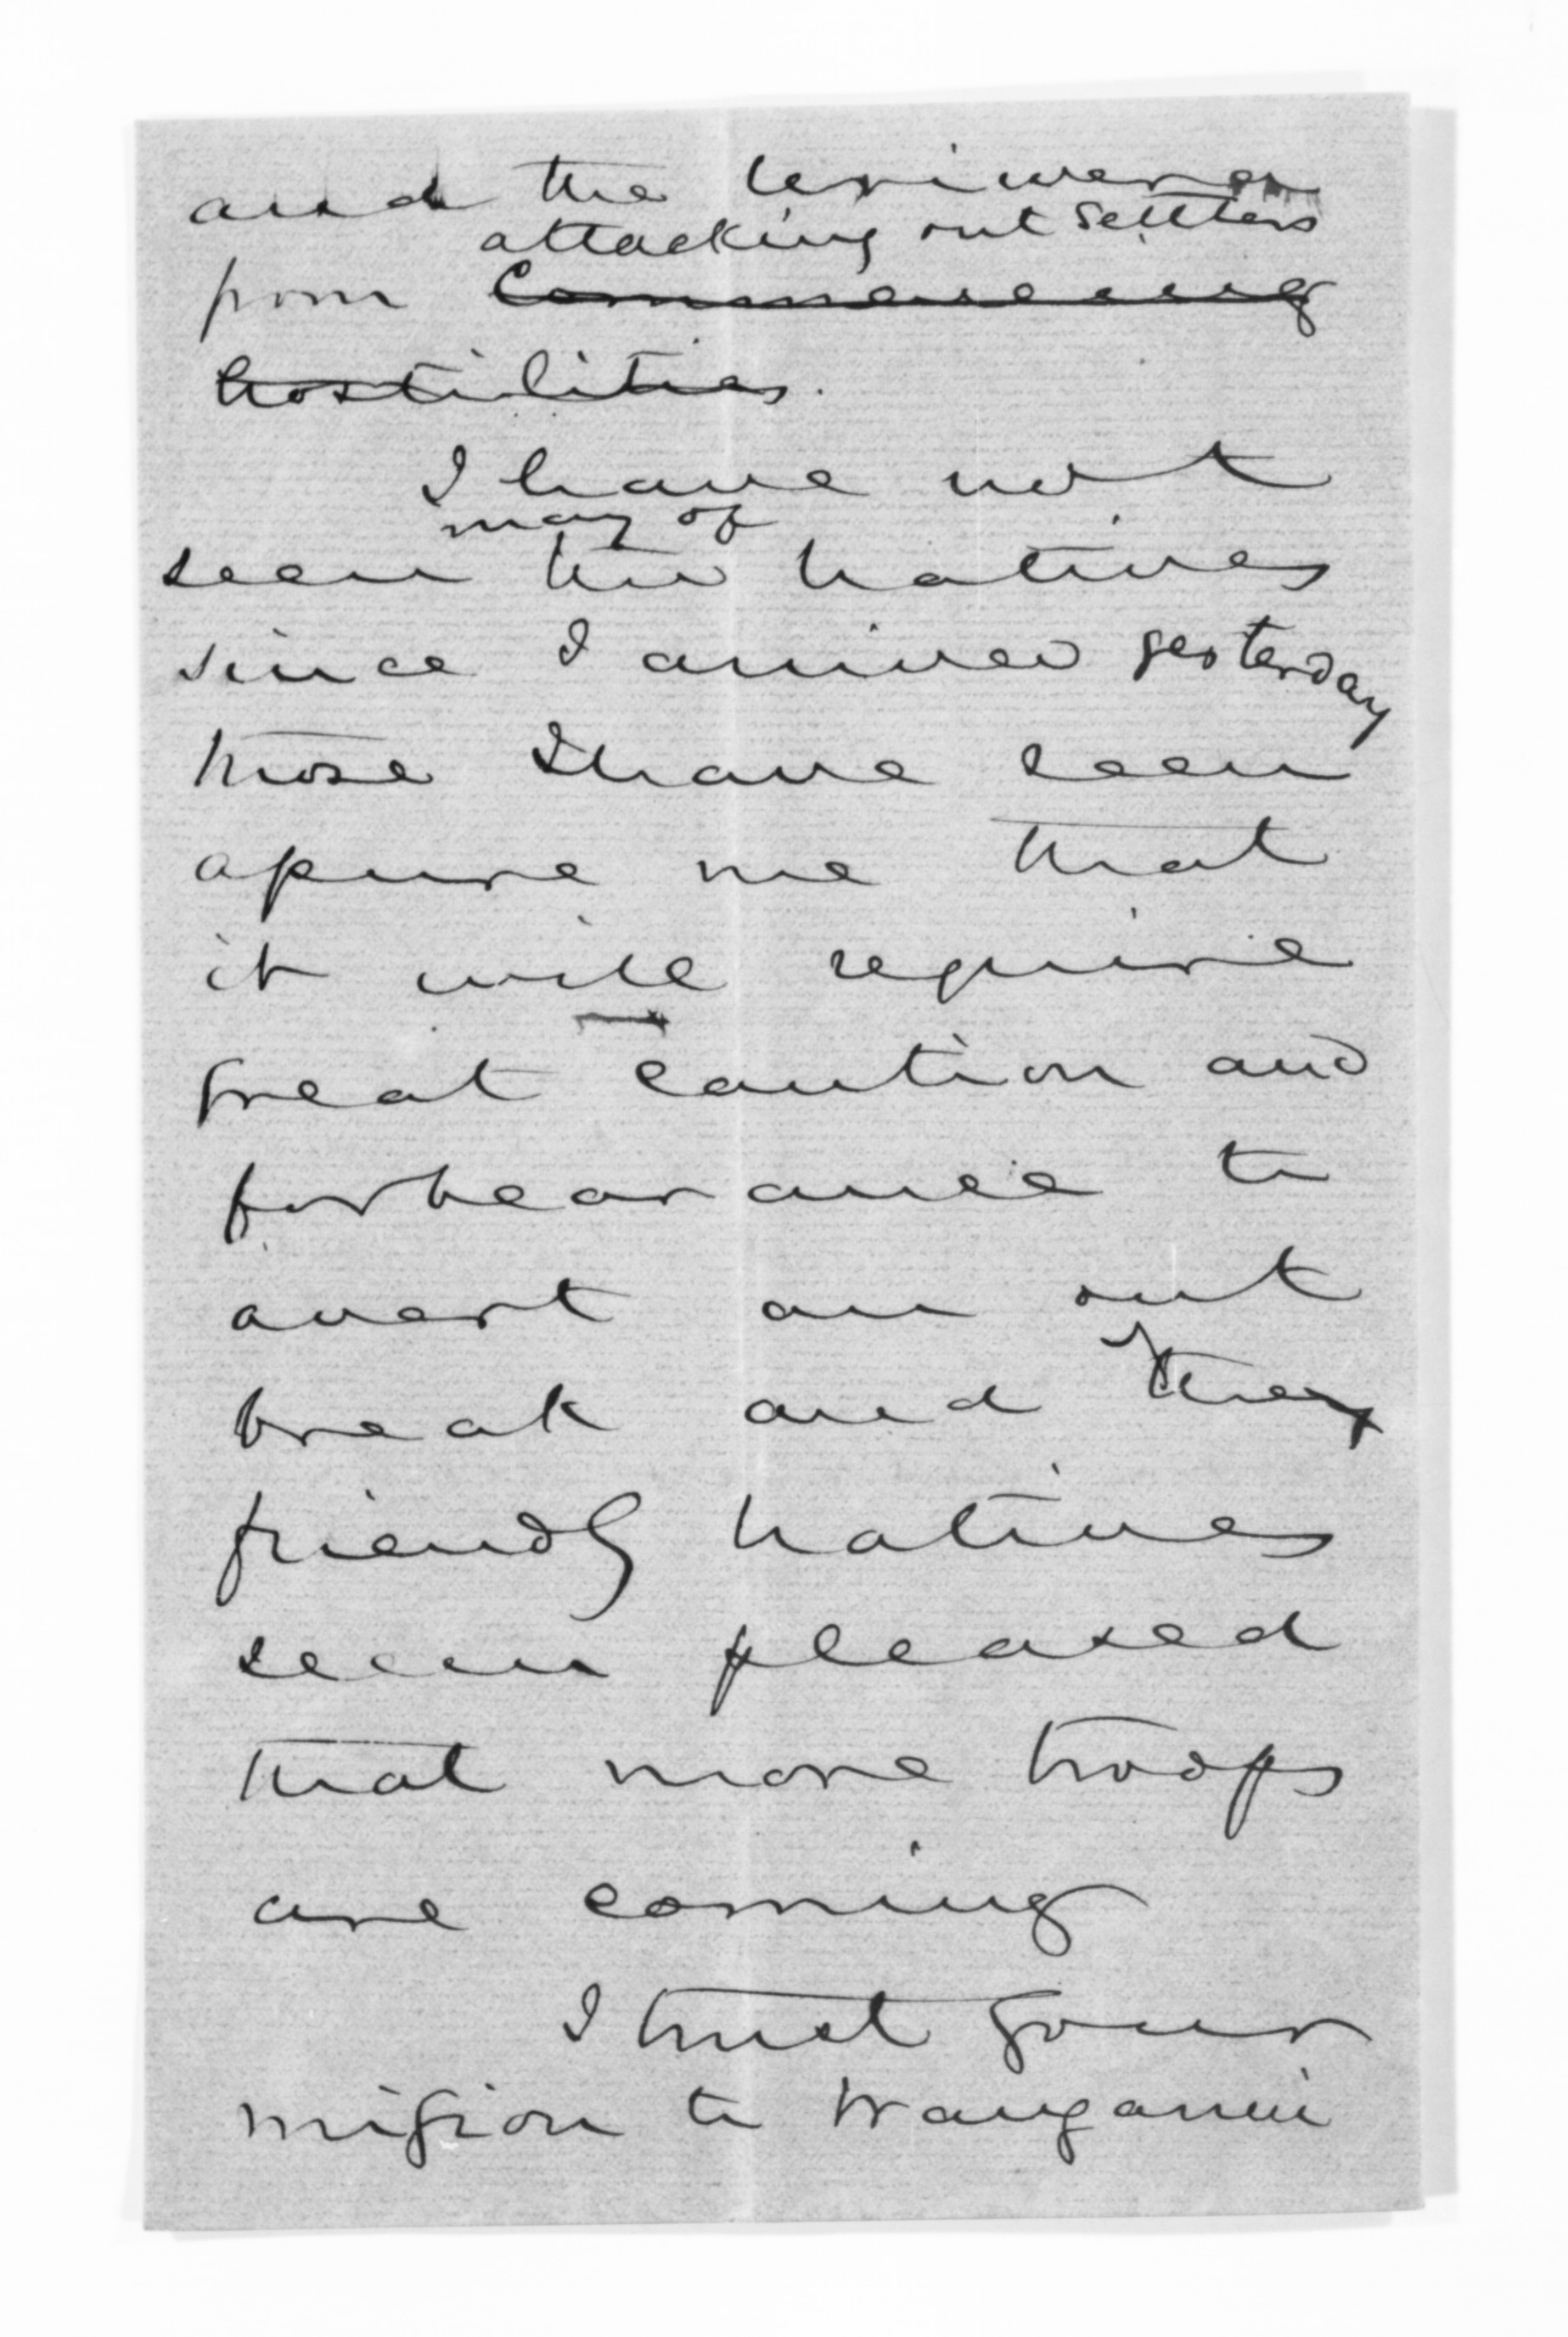 and the Uriwera
attacking out settlers
from Commenceing
hostilities.
I have not
many of
seen the natives
since I arrived yesterday
those I have seen
assure me that
it will require
great caution and
forbearance to
avert an out
break and they
friendly natives
seem pleased
that more troops
are coming
I trust your
mission to Wanganui